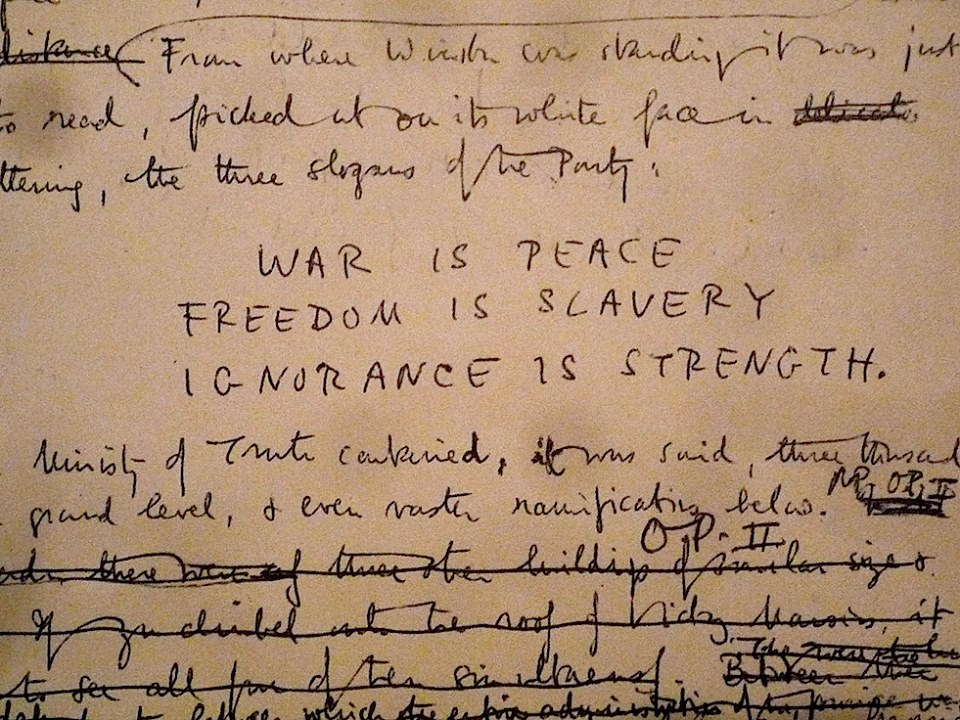 distance From where Winston was standing it was just
to read, picked out on its white face in
ttering, the three slogans of the Party:
WAR IS PEACE
FREEDOM IS SLAVERY
IGNORANCE IS STRENGTH.
Ministry of Truth contained, it was said, three thousand
ground level, & even vaster ramifications below. NP, OP. II
OP. II
there were of three other buildings of similar size &
If you climbed onto the roof of Victory Mansions, it
to see all four of them simultaneously. Between
between which the entire administration of